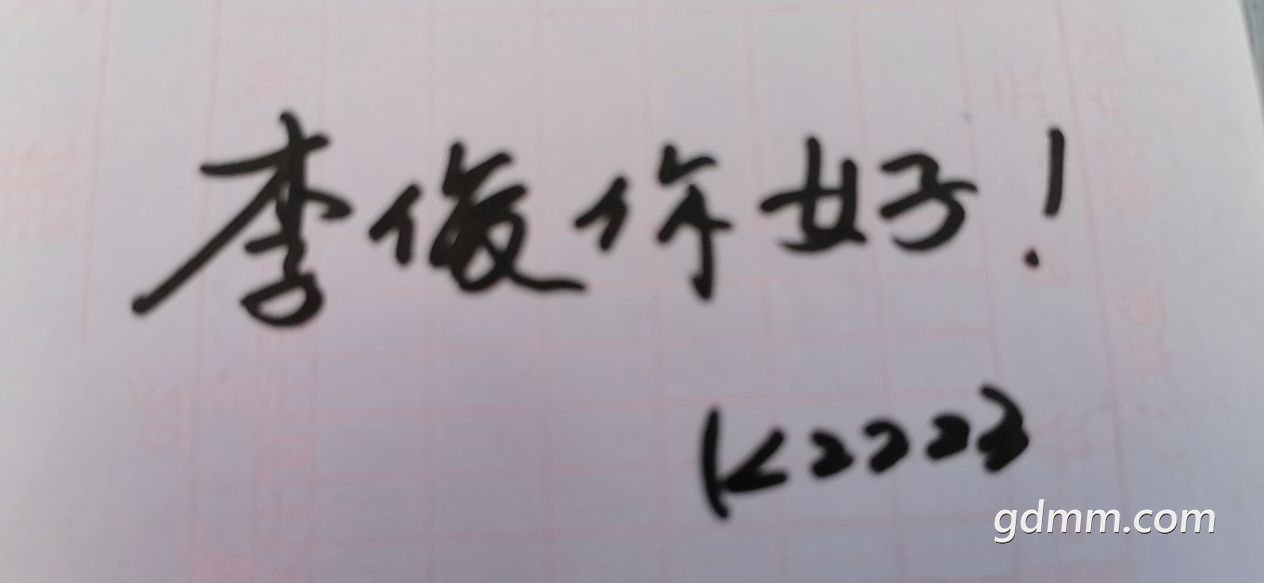 李俊你好！
K2223
gdmm.com